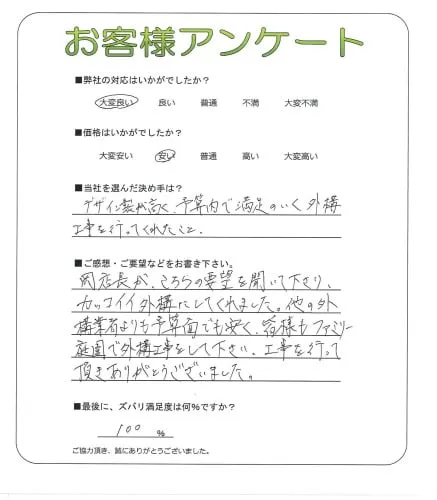 お客様アンケート
■弊社の対応はいかがでしたか?
大変良い 良い 普通 不満 大変不満
■価格はいかがでしたか?
大変安い 安い 普通 高い 大変高い
■当社を選んだ決め手は?
デザイン製が高く、予算内で満足のいく外構
工事を行ってくれたこと。
■ご感想・ご要望などをお書き下さい。
店長が、こちらの要望を聞いて下さり、
カッコイイ外構にしてくれました。他の外
構業者よりも予算面でも安く、皆様もファミリー
庭園で外構工事をして下さい。工事を行って
頂きありがとうございました。
■最後に、ズバリ満足度は何%ですか?
100 %
ご協力頂き、誠にありがとうございました。